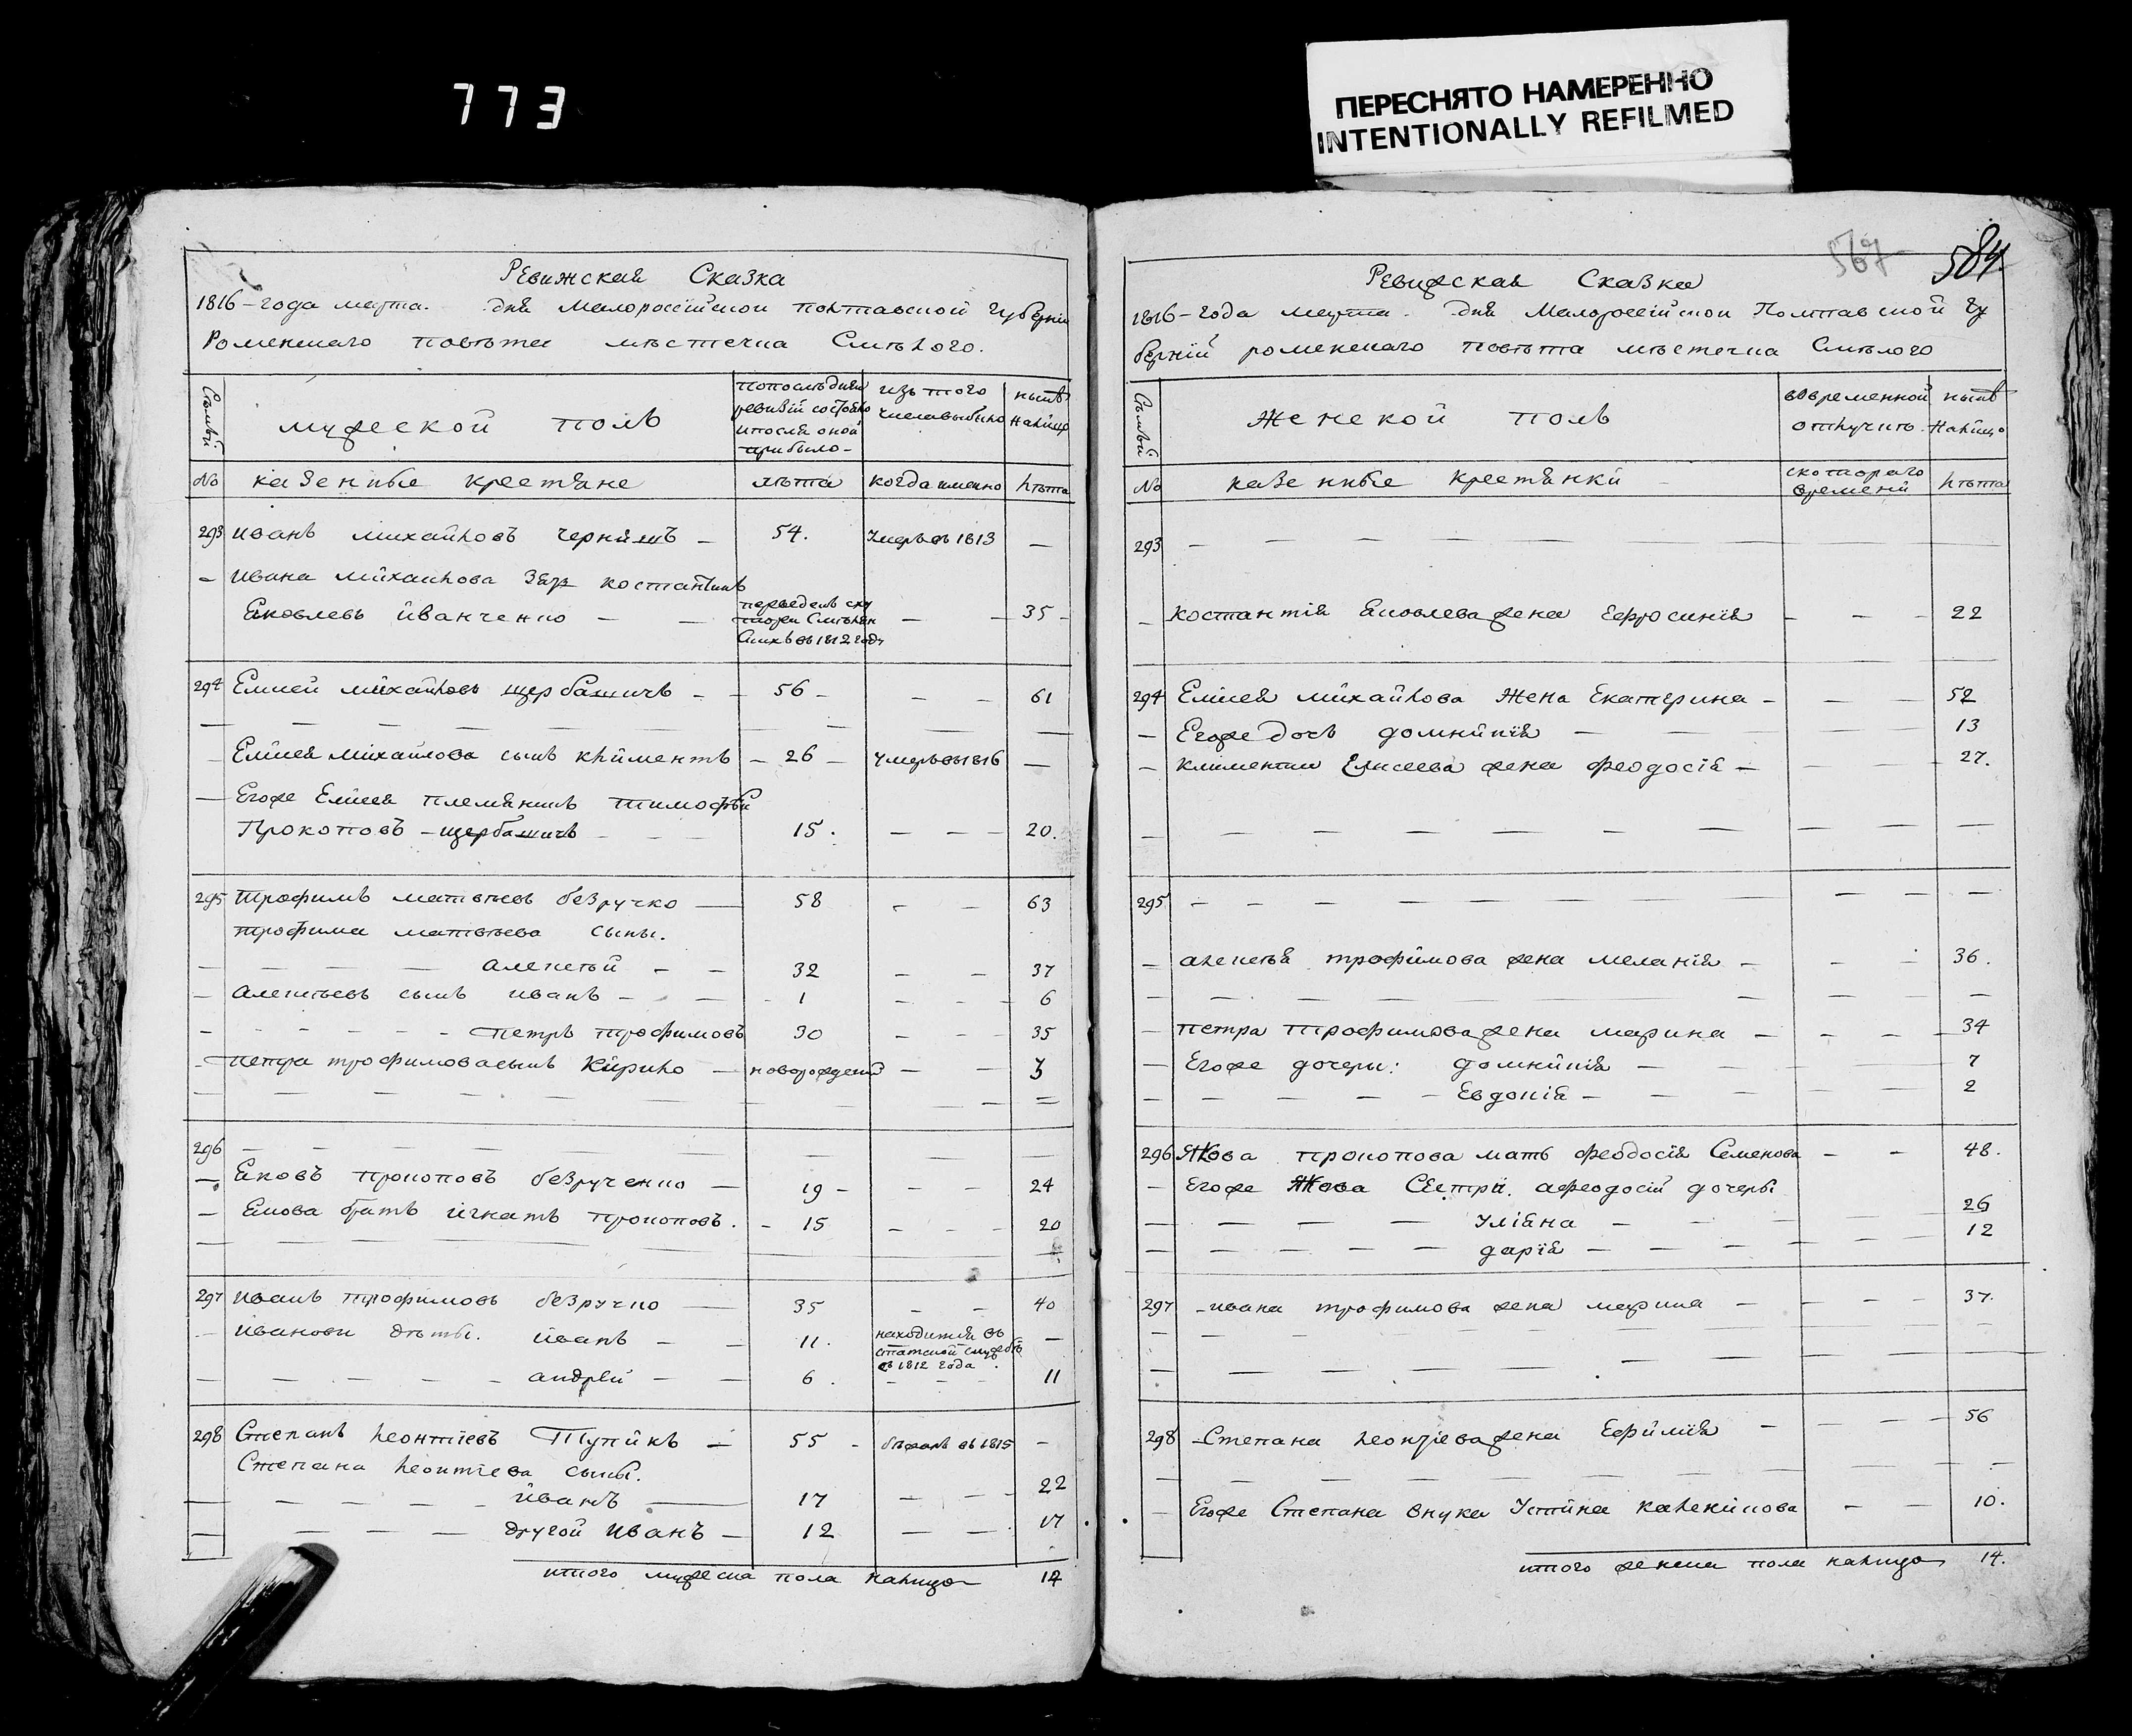 773
ПЕРЕСНЯТО НАМЕРЕННО
INTENTIONALLY REFILMED
Ревижская Сказка
1816-года месяца. дня Малороссійской полтавской губерніи
Роменского повѣта мѣстечка Смѣлого.
Семьи
мужеской полъ
попослѣдней ревизіи состояло ипосля оной прибыло-
изъ того числа выбыло
нынѣ налицо
№ казенные крестяне лѣта когда именно лѣта
293 иванъ михайловъ чернышъ - 54. Умеръ въ 1813 -
- Ивана михаилова зять костантинъ
Яковлевъ иванченко - - 35 -
294 Елисей михайловъ щербашичъ - - 56 - - - 61
Елисея міхаилова сынъ климентъ - 26 - умеръ въ 1816 -
- Егоже Елисея племянникъ тимофѣй
Прокоповъ - щербашичъ - - 15. - - - 20.
295 Трофимъ матвѣевъ безручко - 58 - - 63
трофима матвѣева сыны.
Алексѣй - - 32 - - 37
- Алексѣевъ сынъ иванъ - - - 1 - - - 6
петръ трофимовъ 30 - - - 35
- петра трофимова сынъ Кирило - новорожденій - - 3
296
- Яковъ прокоповъ безрученко - 19 - - - 24
- Якова братъ игнатъ прокоповъ. - 15 - - - 20
297 иванъ трофимовъ безручко - 35 - - 40
- Ивановы дѣты. иванъ - - 11. находится въ статской службѣ съ 1812 года -
андрей - - 6. - - - 11
298 Степанъ леонтіевъ Тупикъ - 55 - бѣжалъ въ 1815 -
Степана леонтіева сыны.
иванъ - 17 - - - 22
другой иванъ - 12 - - 17
итого мужеска пола налицо 14
567 584
Ревижская Сказка
1816-года месяца. дня Малоросійской Полтавской гу
берній роменского повѣта мѣстечка Смѣлого
Семьи
Женской полъ
вовременной отлучкѣ.
нынѣ налицо
№ казенные крестянки - скотораго времени лѣта
293
- костантія Яковлева жена Ефросинія - - - 22
294 Елисея михайлова жена Екатерина - - - 52
- Егоже дочь домникія - - - 13
- климентия Елисеева жена феодосія - - 27.
295
- алексѣя трофимова жена меланія - - - 36.
- петра трофимова жена марина - - - - 34
- Егоже дочеры: домникія - - - 7
- - - - - Евдокія - - - 2
296 Якова прокопова мать феодосія Семенова - - 48.
- Егоже Якова Сестри. афеодосіи дочеры
- - - - Уліяна - - - 26
- - - - - дарія - - - 12
297 - ивана трофимова жена марина - - - - 37.
298 - Степана леонтіева жена Ефимія - - - - 56
- Егоже Степана внука Устина каленикова - - 10.
итого женска пола налицо 14.